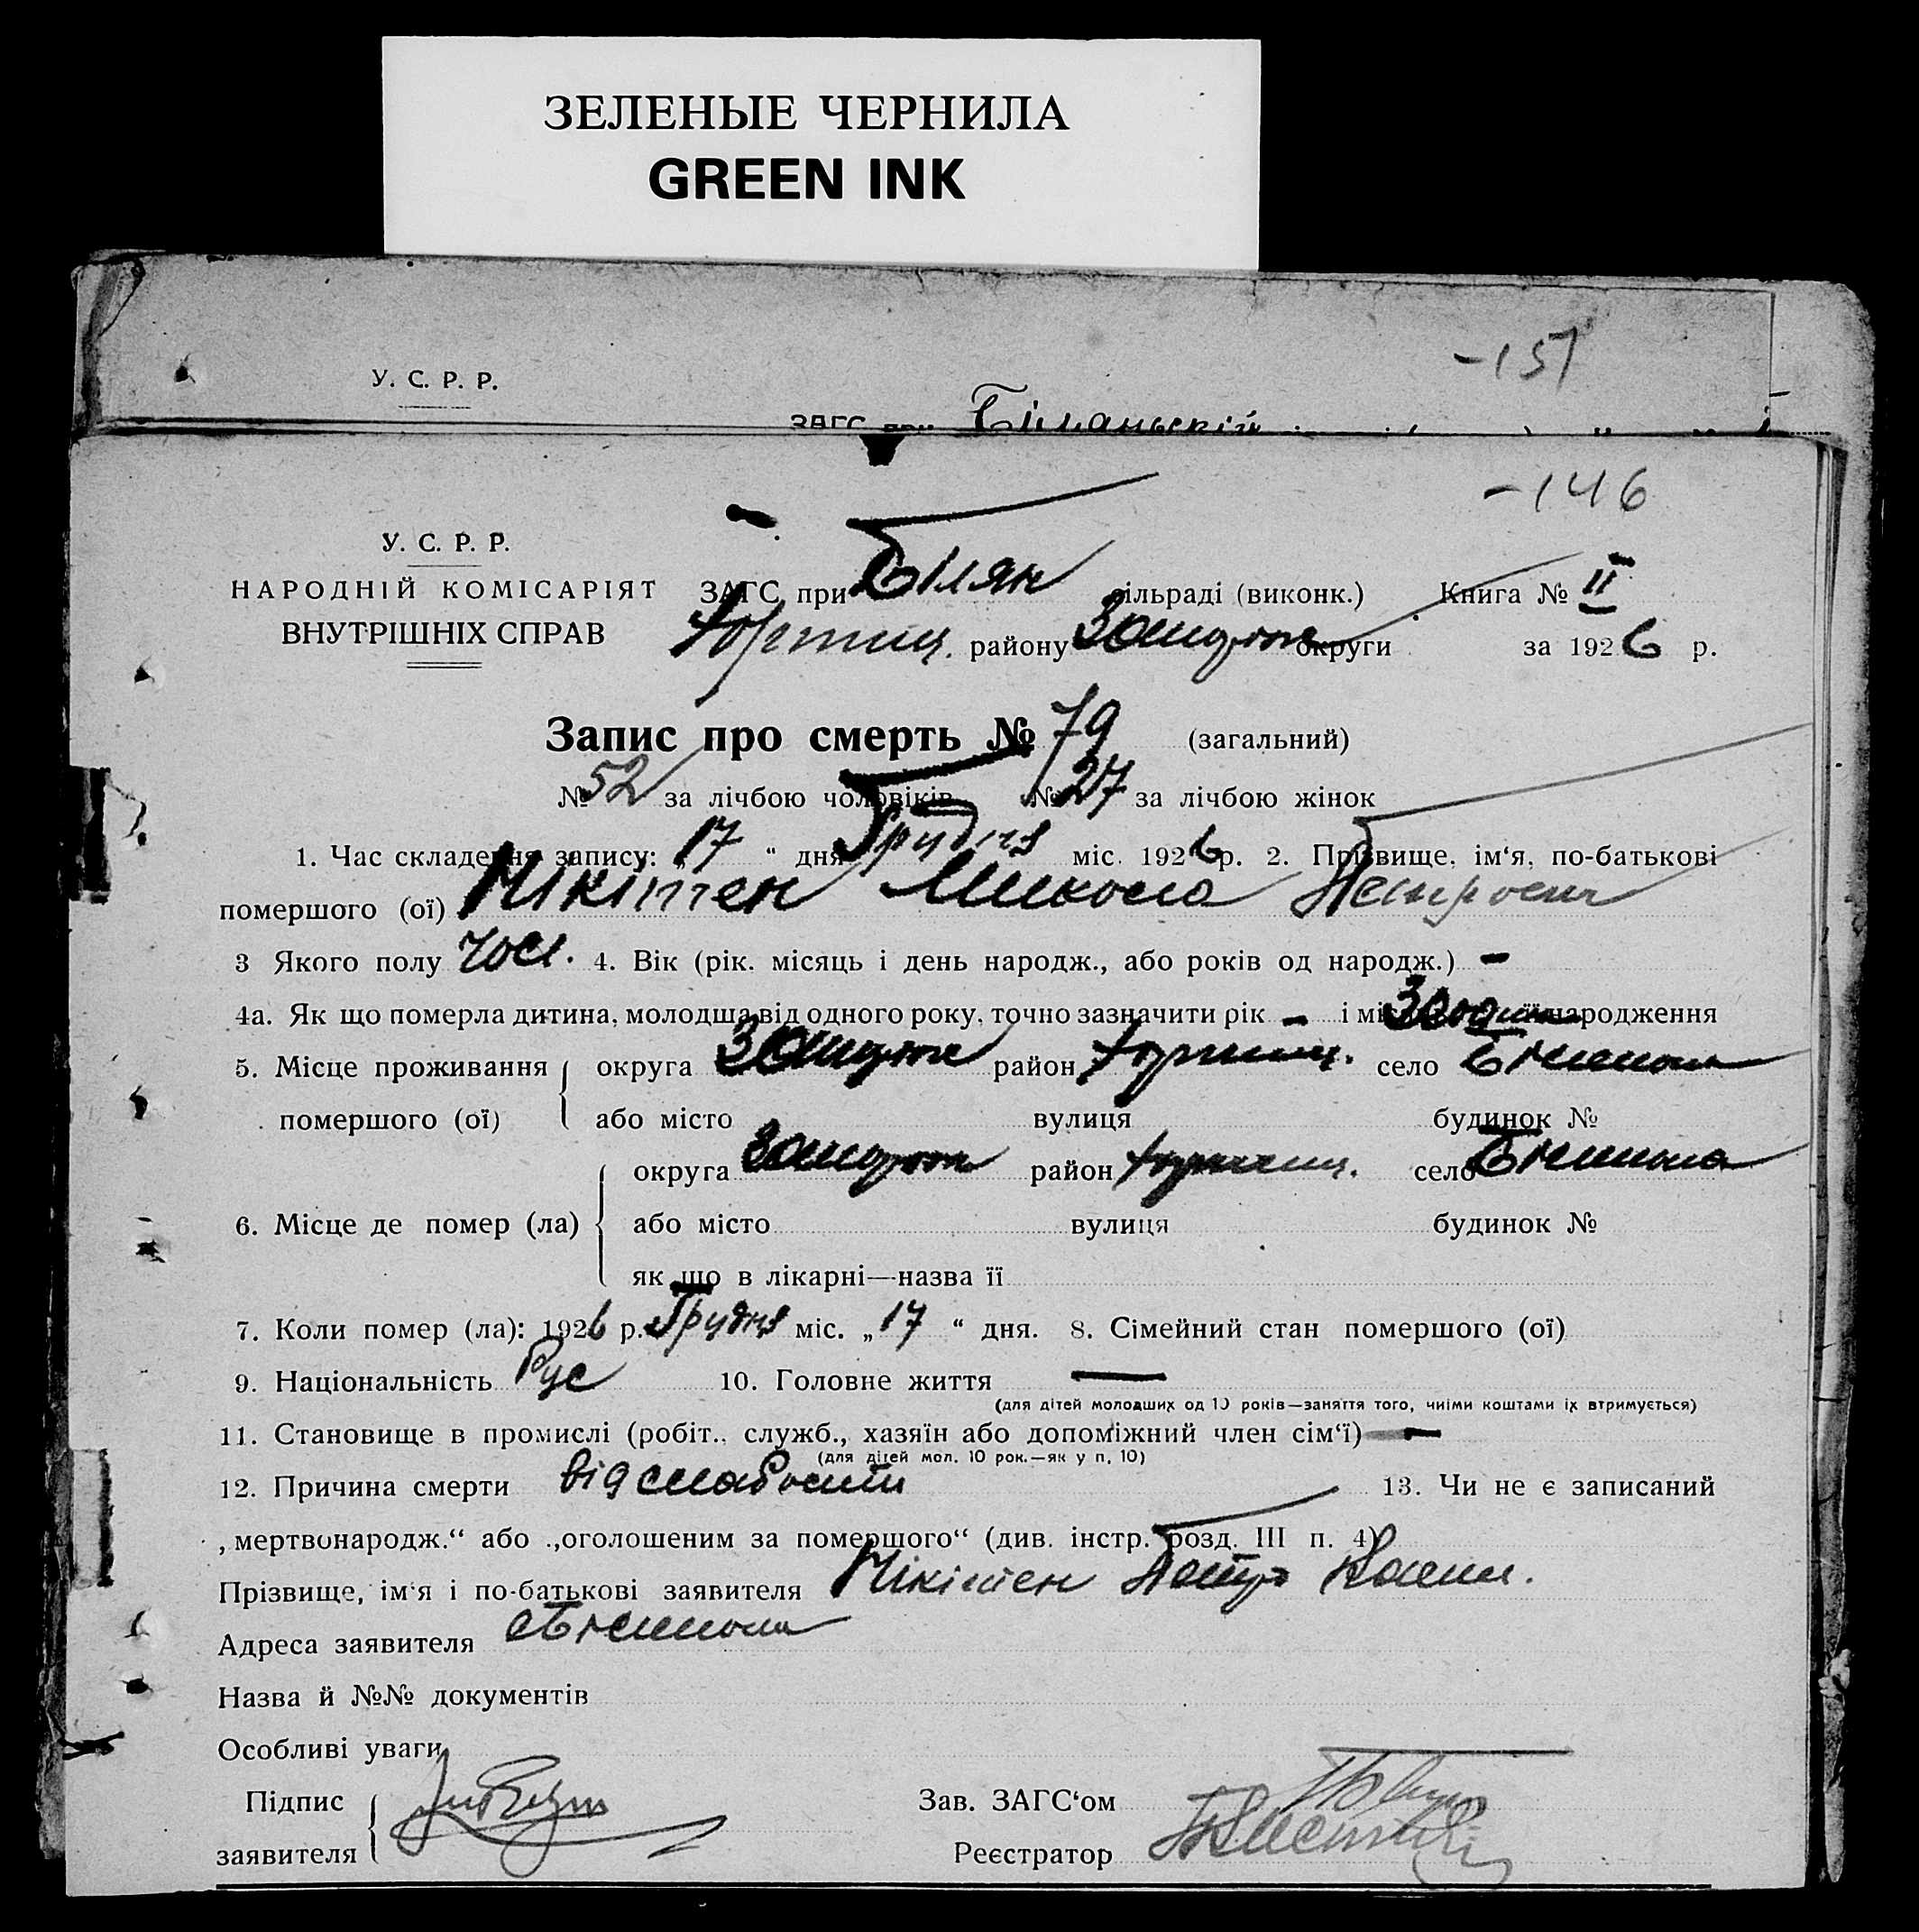 ЗЕЛЕНЫЕ ЧЕРНИЛА
GREEN INK
-151
У. С. Р. Р.
ЗАГС при
-146
У. С. Р. Р.
НАРОДНІЙ КОМІСАРІЯТ
ВНУТРІШНІХ СПРАВ
ЗАГС при Білян сільраді (виконк.) Книга № II
Хортиц. району округи за 1926 р.
Запис про смерть № 79 (загальний)
№ 52 за лічбою чоловіків № 27 за лічбою жінок
1. Час складення запису: „17 “ дня Грудня міс. 1926 р. 2. Прізвище, ім‘я, по-батькові
помершого (ої) Нікітен Микола
3 Якого полу Чол. 4. Вік (рік. місяць і день народж., або років од народж.) -
4а. Як що померла дитина, молодша від одного року, точно зазначити рік - і народження
5. Місце проживання округа район Хортиц. село
помершого (ої) або місто вулиця будинок №
округа район Хортиц. село
6. Місце де помер (ла) або місто вулиця будинок №
як що в лікарні—назва її
7. Коли помер (ла): 1926 р. Грудня міс. „17 “ дня. 8. Сімейний стан помершого (ої)
9. Національність Рус 10. Головне життя —
(для дітей молодших од 10 років—заняття того, чиїми коштами їх втримується)
11. Становище в промислі (робіт., служб., хазяїн або допоміжний член сім‘ї) -
(для дітей мол. 10 рок.—як у п. 10)
12. Причина смерти від слабости 13. Чи не є записаний
„мертвонародж.“ або „оголошеним за помершого“ (див. інстр. розд. III п. 4)
Прізвище, ім‘я і по-батькові заявителя Нікітен Петро
Адреса заявителя
Назва й №№ документів
Особливі уваги
Підпис
заявителя
Зав. ЗАГС‘ом
Реєстратор